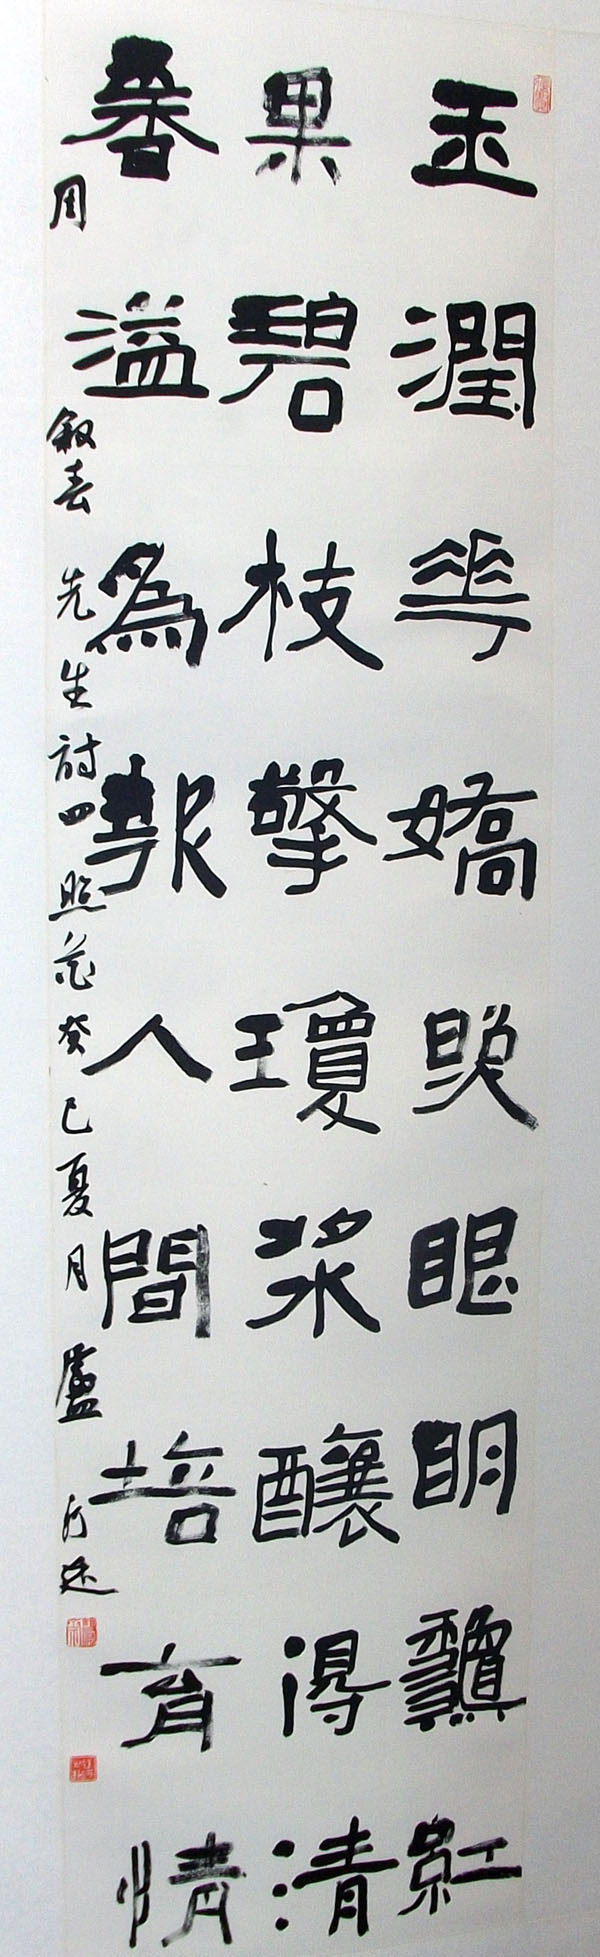 玉潤華嬌映眼明紅
果碧枝擎瓊漿釀得清
香溢為報人間培育情
周敘春先生詩四照花癸巳夏月盧